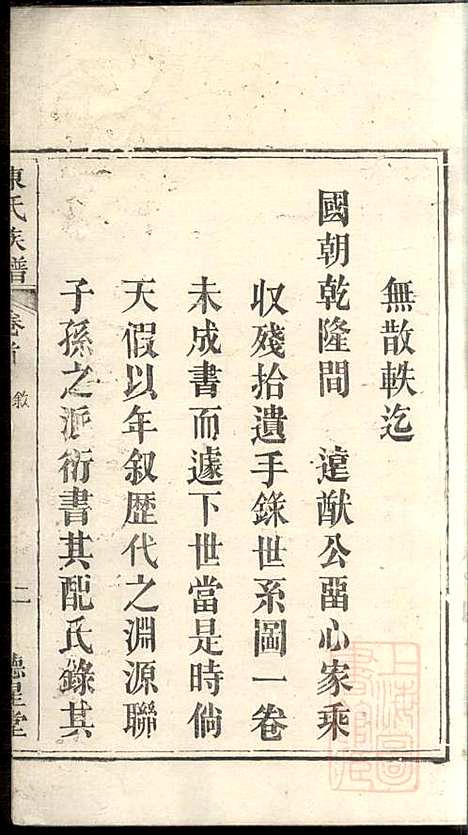 無散軼迄
國朝乾隆間　遠猷公畱心家乘
收殘拾遺手錄世系圖一卷
未成書而遽下世當是時倘
天假以年叙歷代之淵源聯
子孫之派衍書其配氏錄其
陳氏族譜　卷首　敘　二　德星堂
上海圖書館藏